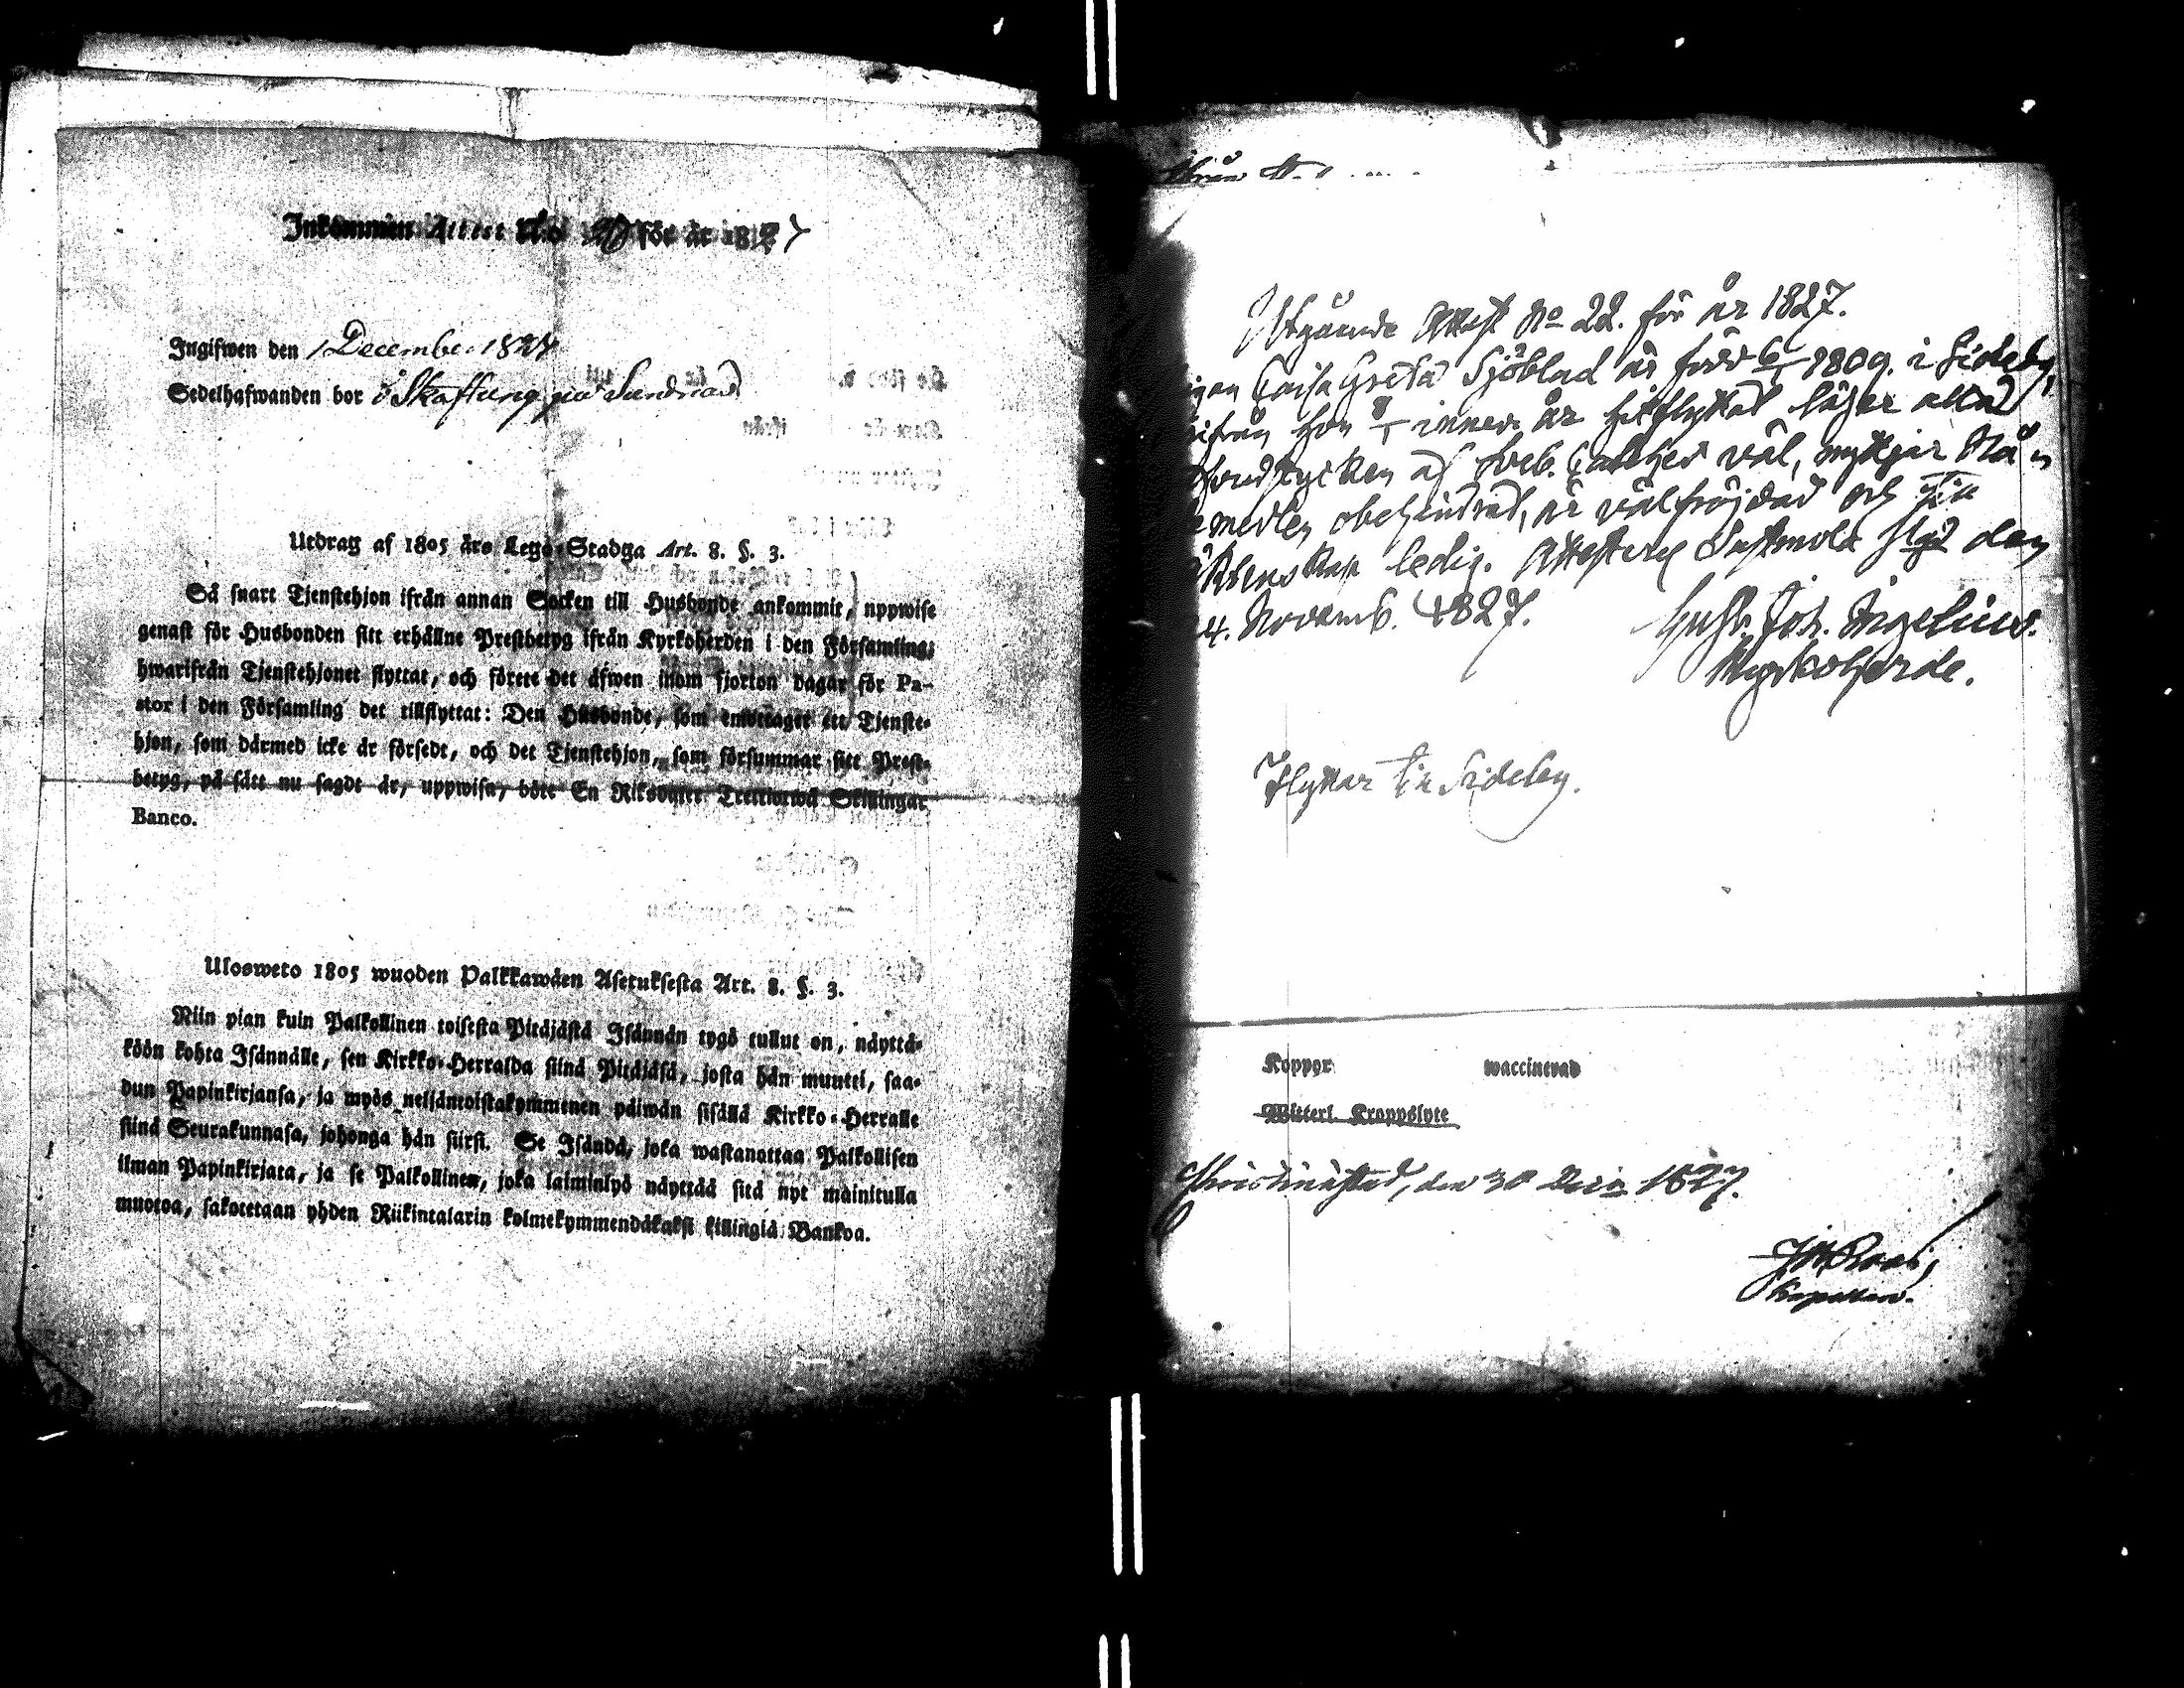 Inkommen Attest N:o 20 för år 1827
Ingifwen den 1 December 1827
Sedelhafwanden bor å Skaftung på Sundnäs
Utdrag af 1805 års Lego-Stadga Art. 8. §. 3.
Så snart Tjenstehjon ifrån annan Socken till Husbonde ankommit, uppwise
genast för Husbonden sitt erhållne Prestbetyg ifrån Kyrkoherden i den Församling,
hwarifrån Tjenstehjonet flyttat, och förete det äfwen inom fjorton dagar för Pa-
stor i den Församling det tillflyttat: Den Husbonde, som emottager ett Tjenste-
hjon, som därmed icke är försedt, och det Tjenstehjon, som försummar sitt Prest-
betyg, på sätt nu sagdt är, uppwisa, böte En Riksdaler Trettiotwå Skillingar
Banco.
Ulosweto 1805 wuoden Palkkawäen Asetuksesta Art. 8. §. 3.
Niin pian kuin Palkollinen toisesta Pitäjästä Isännän tygö tullut on, näyttä-
köön kohta Isännälle, sen Kirkko-Herralda siinä Pitäjäsä, josta hän muutti, saa-
dun Papinkirjansa, ja myös neljäntoistakymmenen päiwän sisällä Kirkko-Herralle
siinä Seurakunnasa, johonga hän siirsi. Se Isändä, joka wastanottaa Palkollisen
ilman Papinkirjata, ja se Palkollinen, joka laiminlyö näyttää sitä nyt mainitulla
muotoa, sakotetaan yhden Riikintalarin kolmekymmendäkaksi killingiä Bankoa.
Utgående Attest No 22. för år 1827.
Caisa Greta Sjöblad är född 6/1 1809. i Sideby,
hon 8/1 innev. år hitflyttat läser
af Sveb. Cateches väl, nyttjar Nå
medlen obehindrad, är välfrejdad och till
ledig. Attesterar Lastmola Styd den
4. Novemb. 1827. Gust. Joh. Ingelius.
Kyrkoherde.
Flyttar till Sideby.
Koppor waccinerad
Witterl. Kroppslyte
Christinestad, den 30 1827.
Kapellan.